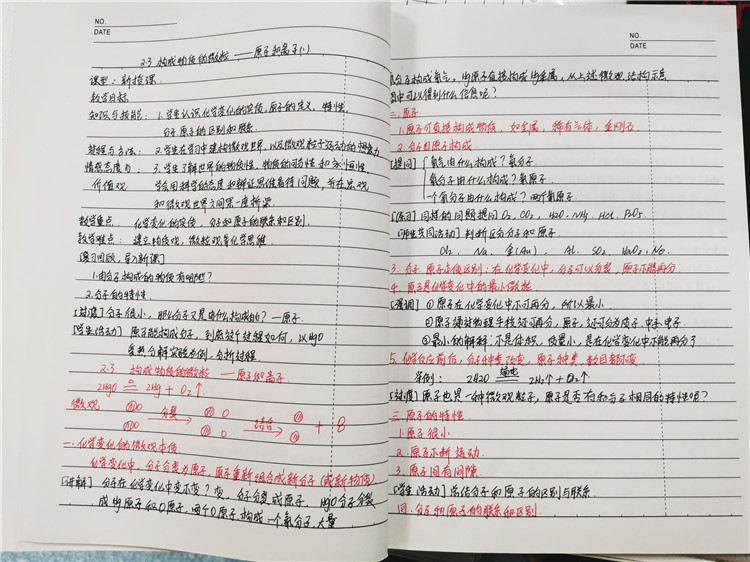 NO.
DATE
2.3 构成物质的微粒 ——原子和离子(1)
课型:新授课
教学目标
知识与技能: 1.学生认识化学变化的实质,原子的定义,特性,
分子原子的区别和联系
过程与方法: 2.学生在学习中建构微观世界,以及微观粒子运动的想象力
情感态度与 : 3.学生了解世界的物质性,物质的可分性和永恒性,
价值观 学会用科学的态度和辩证思维看待问题,并在宏观
和微观世界之间架一座桥梁
教学重点: 化学变化的实质,分子和原子的联系和区别
教学难点: 建立物质观,微粒观等化学思维
[复习回顾,导入新课]
1.由分子构成的物质有哪些?
2.分子的特性
[过渡] 分子很小,那么分子又是由什么构成的? —原子
[学生活动] 原子能构成分子,到底这个过程如何,以HgO
受热分解实验为例,分析过程
2.3 构成物质的微粒 ——原子和离子
2HgO = 2Hg + O₂↑
微观 分裂 结合 +
一.化学变化的微观本质
化学变化中,分子分裂为原子,原子重新组合成新分子(成新物质)
[讲解] 分子在化学变化中变不变?变,分子分裂成原子,HgO分子分裂
成Hg原子和O原子,两个O原子构成一个氧分子,大量
NO.
DATE
氧分子构成氧气,Hg原子直接构成Hg金属,从上述微观结构示意
图中可以得到什么信息呢?
二.原子
1.原子可直接构成物质,如金属,稀有气体,金刚石
2.分子由原子构成
[提问] 氧气由什么构成?氧分子
氧分子由什么构成?氧原子
一个氧分子由什么构成?两个氧原子
[练习] 同样的问题提问O₂,CO₂,H₂O,NH₃,HCl,P₂O₅
[师生共同活动] 判断区分分子和原子
Cl₂, Na, 金(Au), Al, SO₂, H₂O₂, Ne.
3.分子原子本质区别:在化学变化中,分子可以分裂,原子不能再分
4.原子是化学变化中的最小微粒
[强调] ①原子在化学变化中不可再分,所以最小
②原子通过物理手段还可再分,原子,还可分为质子,中子,电子
③最小的解释:不是体积,质量小,是在化学变化中不能再分了
5.化学反应前后,分子种类改变,原子种类,数目都不变
举例: 2H₂O 通电 2H₂↑ + O₂↑
[过渡] 原子也是一种微观粒子,原子是否有和分子相同的特性呢?
三.原子的特性
1.原子很小
2.原子不断运动
3.原子间有间隙
[学生活动] 总结分子和原子的区别与联系
四.分子和原子的联系和区别